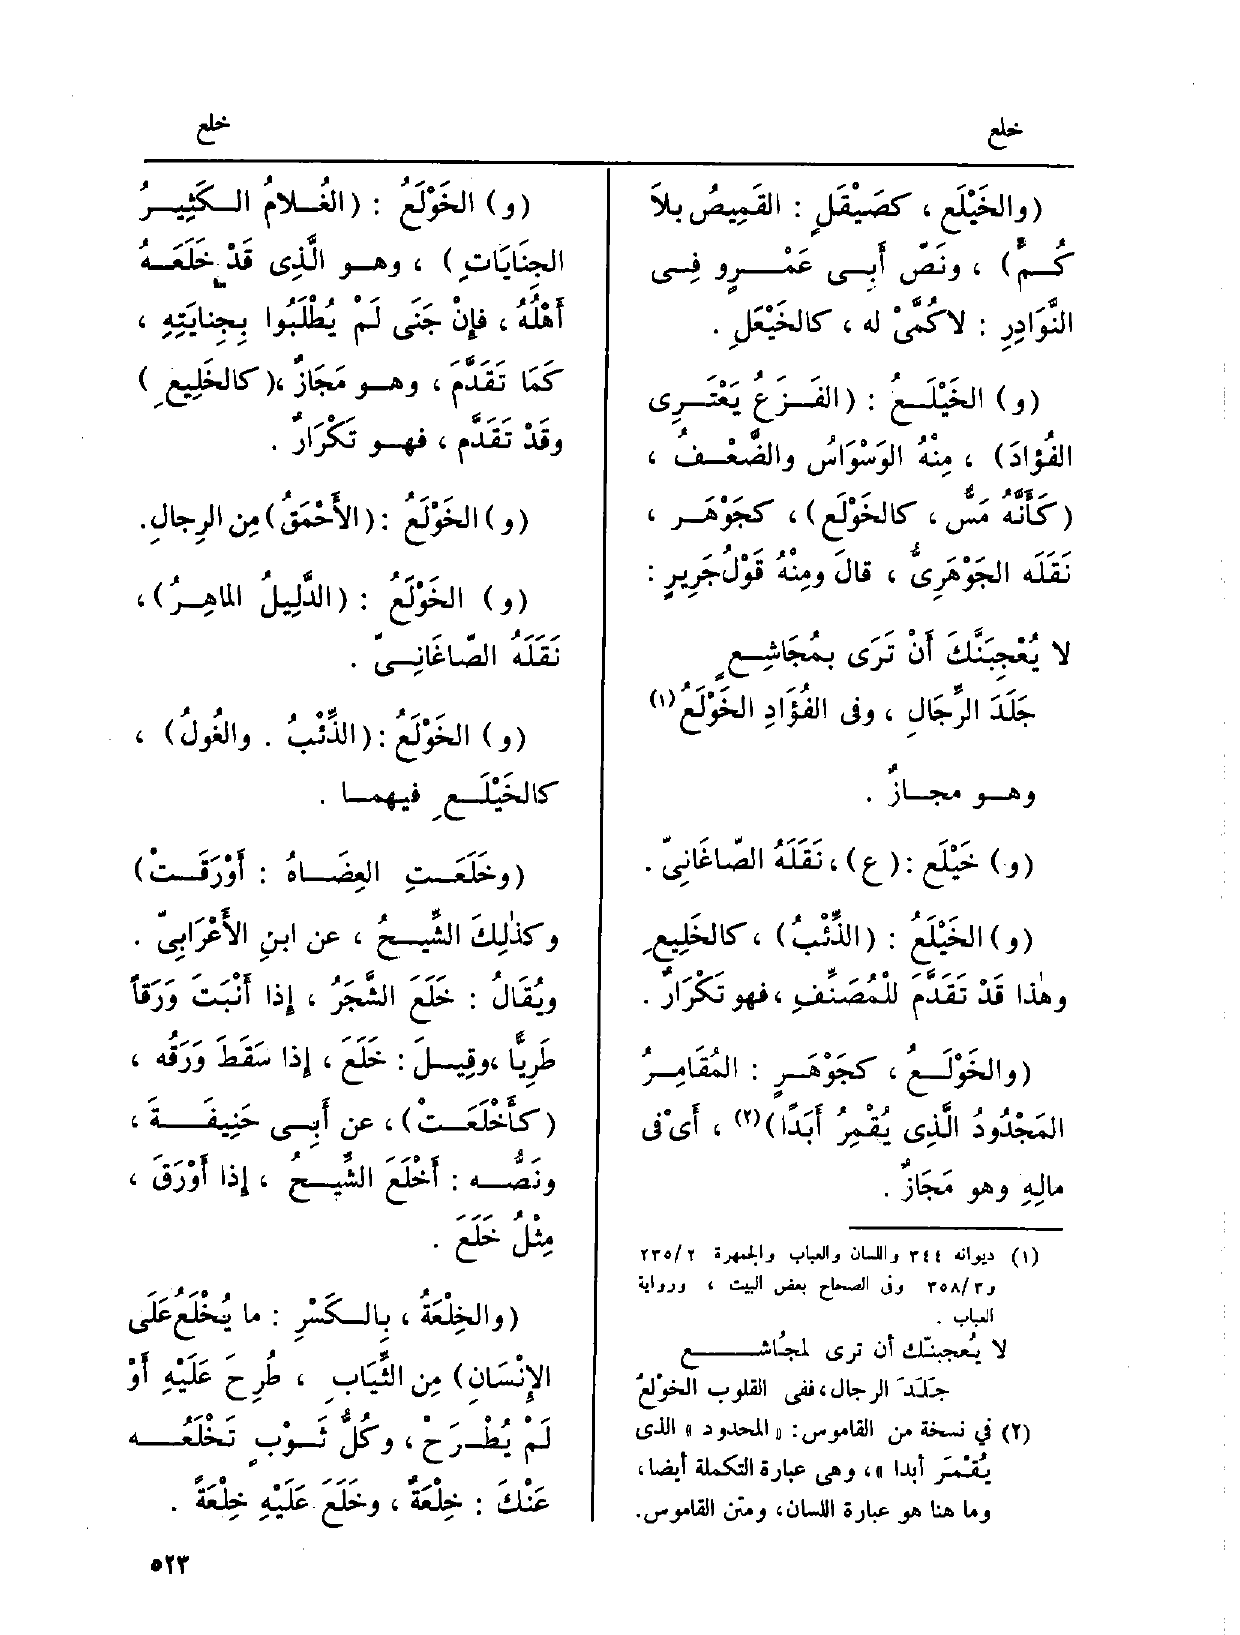 خلع
خلع
(والخَيْلَع ، كصَيْقَلٍ : القَمِيصُ بلاَ
كُــمٍّ) ، ونَصّ أَبــى عَمْــــرٍو فِــى
النَّوَادِرِ : لاكُمَّىْ له ، كالخَيْعَلِ .
(و) الخَيْلَــعُ : (الفَــزَعُ يَعْتَــرِى
الفُؤادَ) ، مِنْهُ الوَسْوَاسُ والضَّعْــفُ ،
(كَأَنَّهُ مَسٌّ ، كالخَوْلَع) ، كجَوْهَــر ،
نَقَلَه الجَوْهَرِىُّ ، قالَ ومِنْهُ قَوْلُ جَرِيرٍ :
لا يُعْجِبَنَّكَ أَنْ تَرَى بمُجَاشِــعٍ
جَلَدَ الرِّجَالِ ، وفى الفُؤَادِ الخَوْلَعُ(١)
وهــو مجــازٌ .
(و) خَيْلَع : (ع) ، نَقَلَهُ الصّاغَانِىّ .
(و) الخَيْلَعُ : (الذِّئْبُ) ، كالخَلِيعِ
وهٰذا قَدْ تَقَدَّمَ للمُصَنِّفِ ، فهو تَكْرَارٌ .
(والخَوْلَــعُ ، كجَوْهَــرٍ : المُقَامِــرُ
المَجْدُودُ الَّذِى يُقْمِرُ أَبَدًا)(٢) ، أَىْ فى
مالِهِ وهو مَجَازٌ .
(١) ديوانه ٣٤٤ واللسان والعباب والجمهرة ٢ /٢٣٥
و٣/ ٣٥٨ وفى الصحاح بعض البيت ، ورواية
العباب .
لا يُعجبنّك أن ترى لمجَاشــــــع
جلَدَ الرجال، ففى القلوب الخولَعُ
(٢) في نسخة من القاموس: « المحدود » الذى
يُقْمَر أبدا »، وهى عبارة التكملة أيضا،
وما هنا هو عبارة اللسان، ومتن القاموس.
(و) الخَوْلَعُ : (الغُــلامُ الــكَثِيــرُ
الجِنَايَاتِ) ، وهــو الَّذِى قَدْ خَلَعَــهُ
أَهْلُهُ ، فإِنْ جَنَى لَمْ يُطْلَبُوا بِجِنايَتِهِ ،
كَمَا تَقَدَّمَ ، وهــو مَجَازٌ ،(كالخَلِيعِ)
وقَدْ تَقَدَّم ، فهــو تَكْرَارٌ .
(و) الخَوْلَعُ : (الأَحْمَقُ) مِن الرِجالِ.
(و) الخَوْلَعُ : (الدَّلِيلُ الماهِــرُ) ،
نَقَلَهُ الصّاغَانِــىّ .
(و) الخَوْلَعُ : (الذِّئْبُ . والغُولُ) ،
كالخَيْلَــعِ فيهمــا .
(وخَلَعَــتِ العِضَــاهُ : أَوْرَقَــتْ)
وكذٰلِكَ الشِّيــحُ ، عن ابنِ الأَعْرَابِىّ .
ويُقَالُ : خَلَعَ الشَّجَرُ ، إِذا أَنْبَتَ وَرَقاً
طَرِيًّا ،وقِيــلَ : خَلَعَ ، إِذا سَقَطَ وَرَقُه ،
(كأَخْلَعَــتْ) ، عن أَبــى حَنِيفَــةَ ،
ونَصُّــه : أَخْلَعَ الشِّيــحُ ، إِذا أَوْرَقَ ،
مِثْلُ خَلَعَ .
(والخِلْعَةُ ، بِالــكَسْرِ : ما يُخْلَعُ عَلَى
الإِنْسَانِ) مِن الثِّيَابِ ، طُرِحَ عَلَيْهِ أَوْ
لَمْ يُطْــرَحْ ، وكُلُّ ثَــوْبٍ تَخْلَعُــه
عَنْكَ : خِلْعَةٌ ، وخَلَعَ عَلَيْهِ خِلْعَةً .
٥٢٣